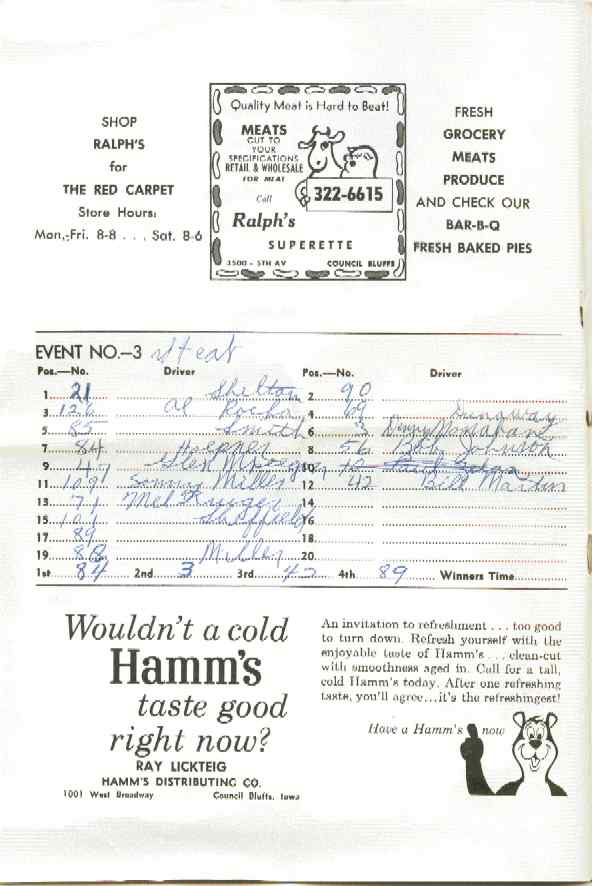 SHOP
RALPH'S
for
THE RED CARPET
Store Hours:
Mon.-Fri. 8-8 . . . Sat. 8-6
Quality Meat is Hard to Beat!
MEATS
CUT TO
YOUR
SPECIFICATIONS
RETAIL & WHOLESALE
FOR MEAT
Call
322-6615
Ralph's
SUPERETTE
3500 - 5TH AV COUNCIL BLUFFS
FRESH
GROCERY
MEATS
PRODUCE
AND CHECK OUR
BAR-B-Q
FRESH BAKED PIES
EVENT NO.—3 Heat
Pos.—No. Driver Pos.—No. Driver
1. 21 Shelton 2 90
3. 126 Al Rocha 4 69 Dunaway
5 85 Smith 6 3
7 84 Hoepner 8 56 Bob Johnson
9 47 Glen 10
11 109 Sonny Miller 12 42 Bill Martin
13 71 Mel Krueger 14
15 101 Sheffield 16
17 89 18
19 88 Miller 20
1st 84 2nd 3 3rd 42 4th 89 Winners Time
Wouldn't a cold
Hamm's
taste good
right now?
RAY LICKTEIG
HAMM'S DISTRIBUTING CO.
1001 West Broadway Council Bluffs, Iowa
An invitation to refreshment . . . too good
to turn down. Refresh yourself with the
enjoyable taste of Hamm's . . . clean-cut
with smoothness aged in. Call for a tall,
cold Hamm's today. After one refreshing
taste, you'll agree...it's the refreshingest!
Have a Hamm's now